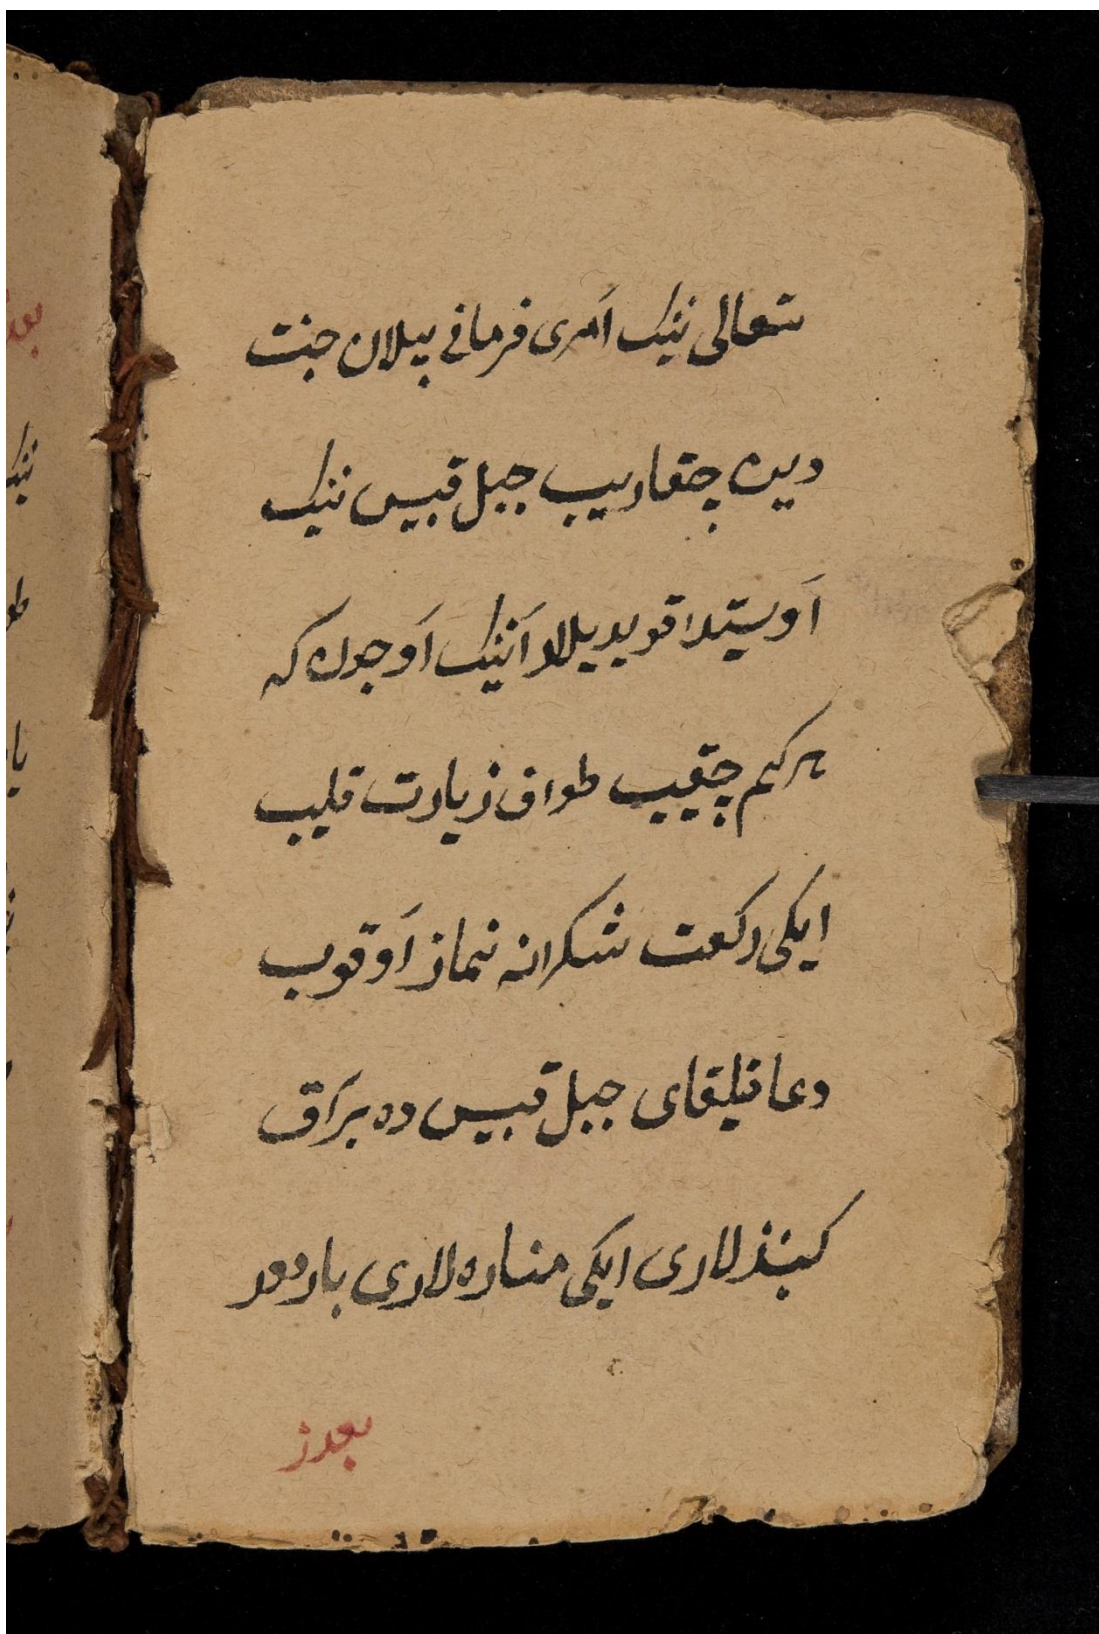 تعالی نینک اَمری فرمانی بیلان جنت
دین چقاریب جبل قبیس نینک
اَوستیدا قویدیلار اَنینک اَوجون که
هرکیم چقیب طواف زیارت قلیب
ایکی رکعت شکرانه نماز اَوقوب
دعا قیلقای جبل قبیس ده بَراق
کنبذلاری ایکی مناره لاری باردور
بعدز